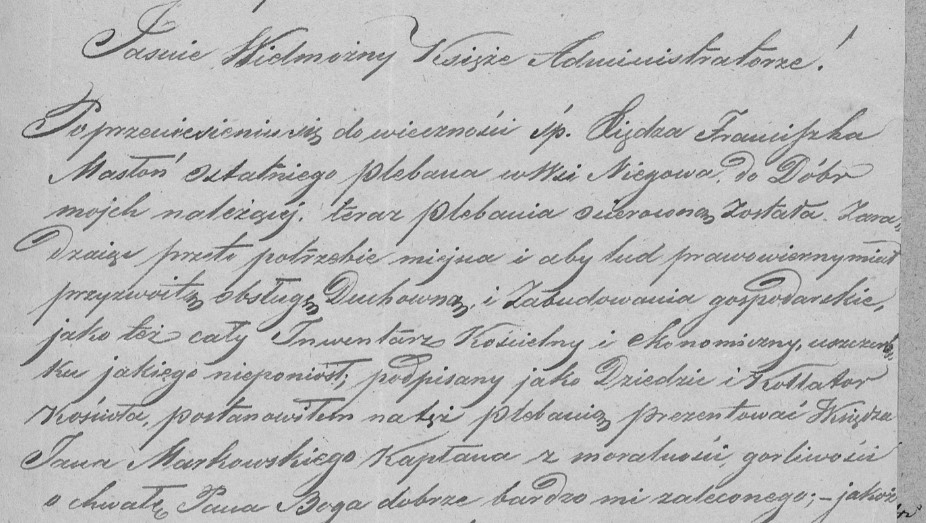 Jasnie Wielmożny Księże Administratorze!
Po przeniesieniu się do wieczności śp. Xiędza Franciszka
Masłoń ostatniego plebana w Wsi Niegowa, do Dóbr
mojch należącej, teraz plebania osierocona została. Zara-
dzaiąc przeto potrzebie miejsca i aby lud prawowierny miał
przyzwoitą obsługę Duchowną, i Zabudowania gospodarskie,
jako też cały Inwentarz Kościelny i ekonomiczny, uszczerb-
ku jakiego nieponiosł; podpisany jako Dziedzic i Kollator
Kościoła, postanowiłem na tęż plebanią prezentować Xiędza
Jana Markowskiego Kapłana z moralności, gorliwości
o chwałę Pana Boga dobrze bardzo mi zaleconego; – jakoż